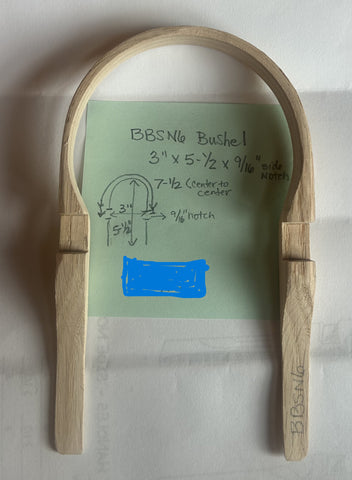 BBSN6 Bushel
3" x 5-1/2 x 9/16" side
Notch
7-1/2 Center to
center
3"
9/16" notch
5-1/2"
BBSN6